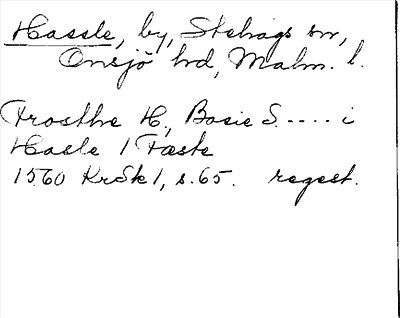 Hassle, by, Stehags sn,
Onsjö hd, Malm. l.
Frosthe H, Bosie S. .... i
Hasle 1 Fæste
1560 KrSk 1, s. 65. regest.